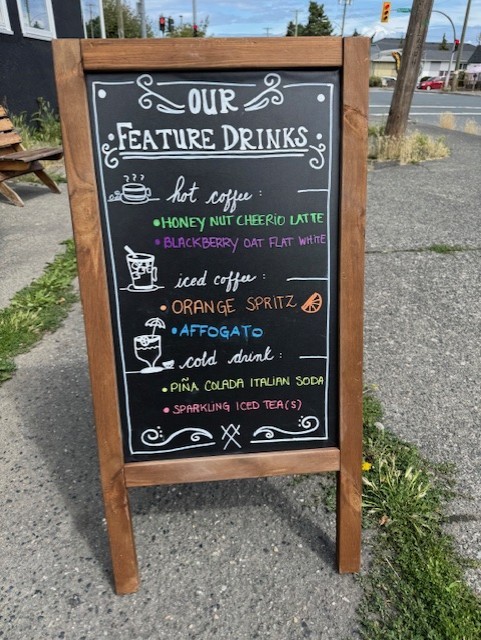 OUR
FEATURE DRINKS
hot coffee:
•HONEY NUT CHEERIO LATTE
•BLACKBERRY OAT FLAT WHITE
iced coffee:
•ORANGE SPRITZ
•AFFOGATO
cold drink:
•PIÑA COLADA ITALIAN SODA
•SPARKLING ICED TEA(S)